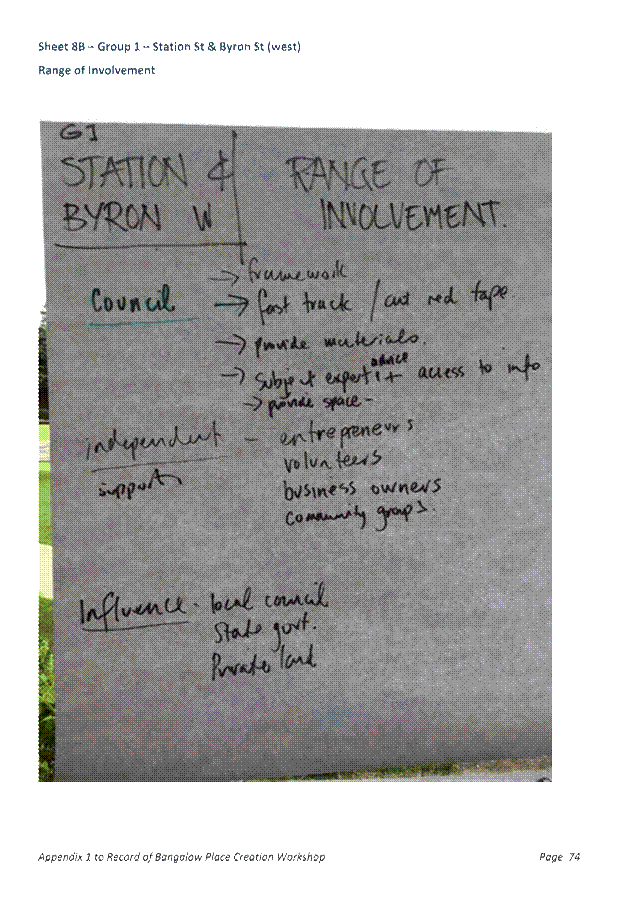 Sheet 8B – Group 1 – Station St & Byron St (west)
Range of Involvement
G1
STATION & RANGE OF
BYRON W INVOLVEMENT.
→ framework
Council → fast track / cut red tape.
→ provide materials.
advice
→ subject expert + access to info
→ provide space -
independent - entrepreneurs
volunteers
support
business owners
community groups.
Influence - local council
State govt.
Private land
Appendix 1 to Record of Bangalow Place Creation Workshop Page 74